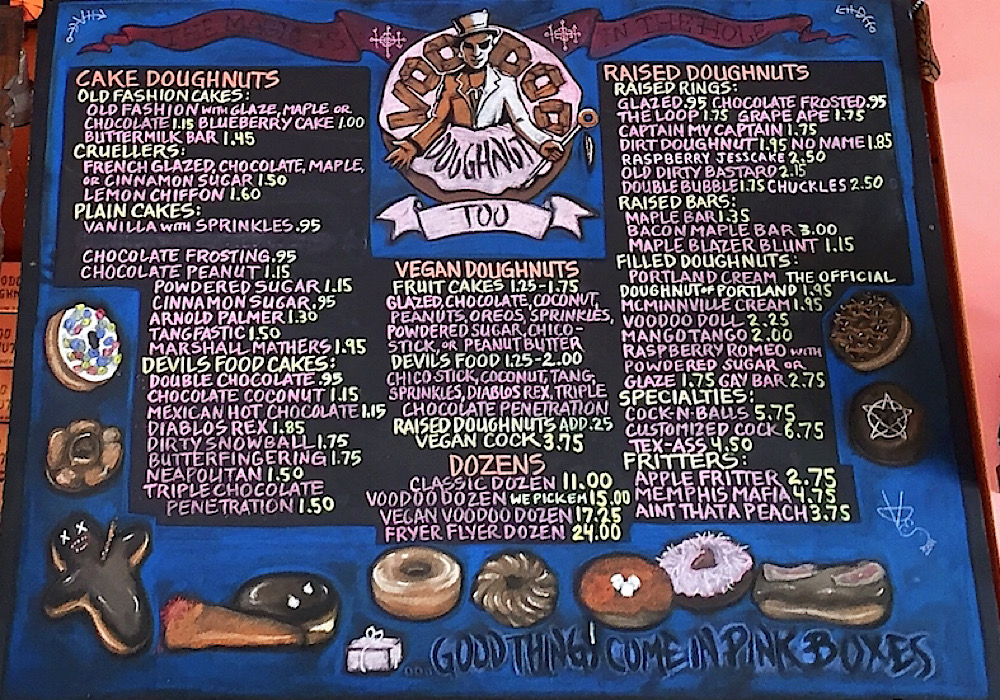 THE MAGIC IS
IN THE HOLE
VOODOO
DOUGHNUT
TOO
CAKE DOUGHNUTS
OLD FASHION CAKES:
OLD FASHION WITH GLAZE, MAPLE OR
CHOCOLATE 1.15 BLUEBERRY CAKE 1.00
BUTTERMILK BAR 1.45
CRUELLERS:
FRENCH GLAZED, CHOCOLATE, MAPLE,
OR CINNAMON SUGAR 1.50
LEMON CHIFFON 1.60
PLAIN CAKES:
VANILLA WITH SPRINKLES .95
CHOCOLATE FROSTING .95
CHOCOLATE PEANUT 1.15
POWDERED SUGAR 1.15
CINNAMON SUGAR .95
ARNOLD PALMER 1.30
TANGFASTIC 1.50
MARSHALL MATHERS 1.95
DEVILS FOOD CAKES:
DOUBLE CHOCOLATE .95
CHOCOLATE COCONUT 1.15
MEXICAN HOT CHOCOLATE 1.15
DIABLOS REX 1.85
DIRTY SNOWBALL 1.75
BUTTERFINGERING 1.75
NEAPOLITAN 1.50
TRIPLE CHOCOLATE
PENETRATION 1.50
VEGAN DOUGHNUTS
FRUIT CAKES 1.25-1.75
GLAZED, CHOCOLATE, COCONUT,
PEANUTS, OREOS, SPRINKLES,
POWDERED SUGAR, CHICO-
STICK, OR PEANUT BUTTER
DEVILS FOOD 1.25-2.00
CHICO STICK, COCONUT, TANG,
SPRINKLES, DIABLOS REX, TRIPLE
CHOCOLATE PENETRATION
RAISED DOUGHNUTS ADD .25
VEGAN COCK 3.75
DOZENS
CLASSIC DOZEN 11.00
VOODOO DOZEN WE PICK EM 15.00
VEGAN VOODOO DOZEN 17.25
FRYER FLYER DOZEN 24.00
RAISED DOUGHNUTS
RAISED RINGS:
GLAZED .95 CHOCOLATE FROSTED .95
THE LOOP 1.75 GRAPE APE 1.75
CAPTAIN MY CAPTAIN 1.75
DIRT DOUGHNUT 1.95 NO NAME 1.85
RASPBERRY JESSCAKE 2.50
OLD DIRTY BASTARD 2.15
DOUBLE BUBBLE 1.75 CHUCKLES 2.50
RAISED BARS:
MAPLE BAR 1.35
BACON MAPLE BAR 3.00
MAPLE BLAZER BLUNT 1.15
FILLED DOUGHNUTS:
PORTLAND CREAM THE OFFICIAL
DOUGHNUT OF PORTLAND 1.95
MCMINNVILLE CREAM 1.95
VOODOO DOLL 2.25
MANGO TANGO 2.00
RASPBERRY ROMEO WITH
POWDERED SUGAR OR
GLAZE 1.75 GAY BAR 2.75
SPECIALTIES:
COCK-N-BALLS 5.75
CUSTOMIZED COCK 6.75
TEX-ASS 4.50
FRITTERS:
APPLE FRITTER 2.75
MEMPHIS MAFIA 4.75
AINT THAT A PEACH 3.75
...GOOD THINGS COME IN PINK BOXES